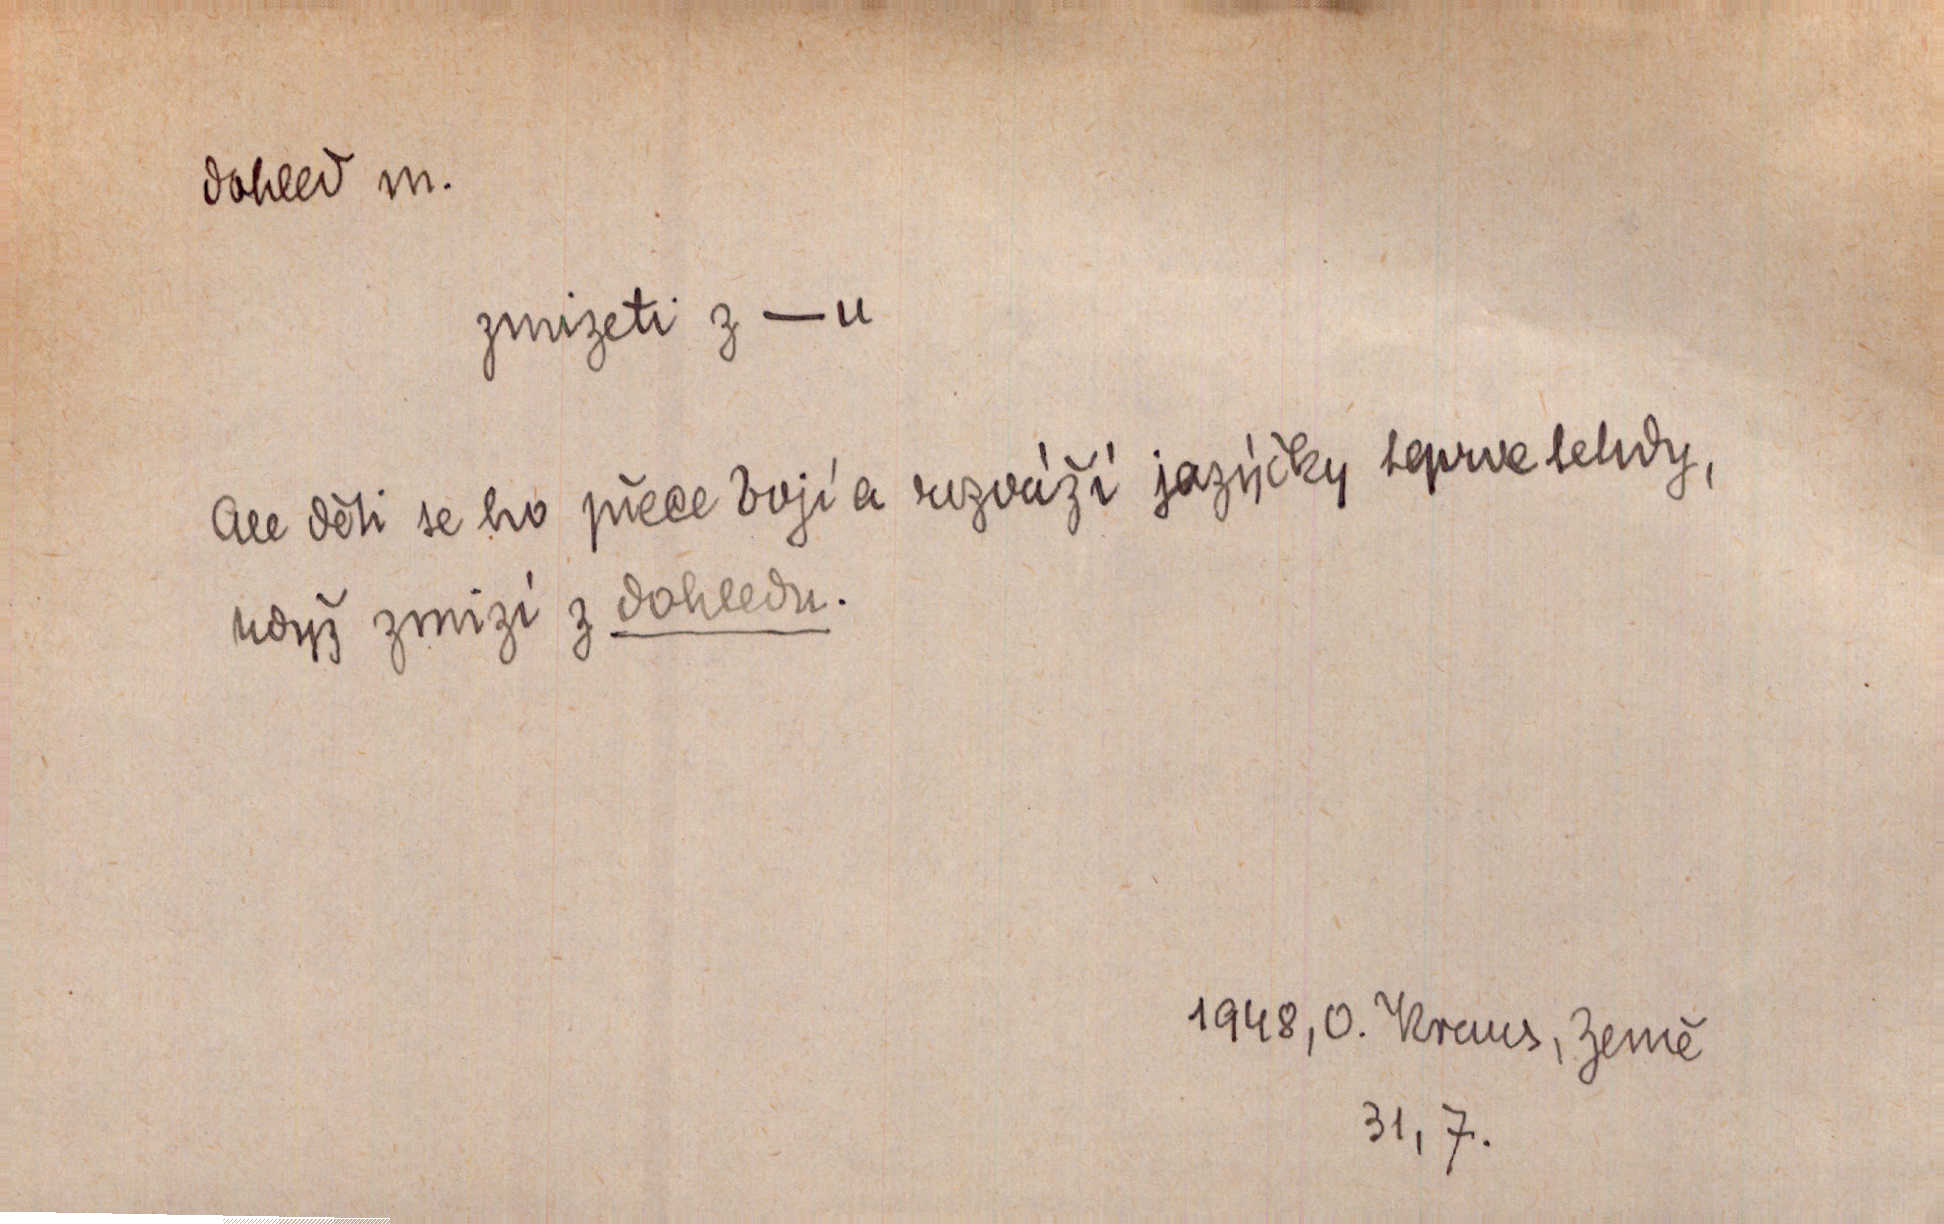 dohled m.
zmizeti z — u
Ale děti se ho přece bojí a rozváží jazýčky teprve tehdy,
když zmizí z dohledu.
1948, O. Kraus, Země
31, 7.